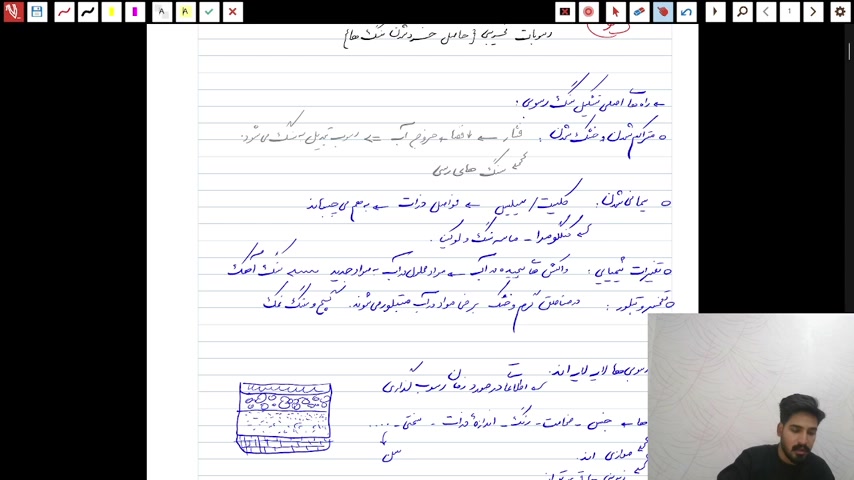 رسوبات تخریبی {حاصل خرد شدن سنگ ها}
← راه های اصلی تشکیل سنگ رسوبی:
o متراکم شدن و خشک شدن: فشار ← + فضا ← خروج آب ⇐ رسوب تبدیل به سنگ می شود.
سنگ های رسی
o سیمانی شدن: کلسیت / سیلیس ← فواصل ذرات ← به هم می چسباند
کنگلومرا - ماسه سنگ
o تغییرات شیمیایی: واکنش ها شیمیایی در آب ← مواد محلول در آب ← مواد جدید ← سنگ آهک
o تبخیر و تبلور: در مناطق گرم و خشک برخی مواد در آب متبلور می شوند. گچ و سنگ نمک
رسوبی ها لایه لایه اند:
اطلاعات در مورد زمان رسوب گذاری
ها ← جنس - ضخامت - رنگ - اندازه ذرات - سختی - ....
موازی اند. سن
1